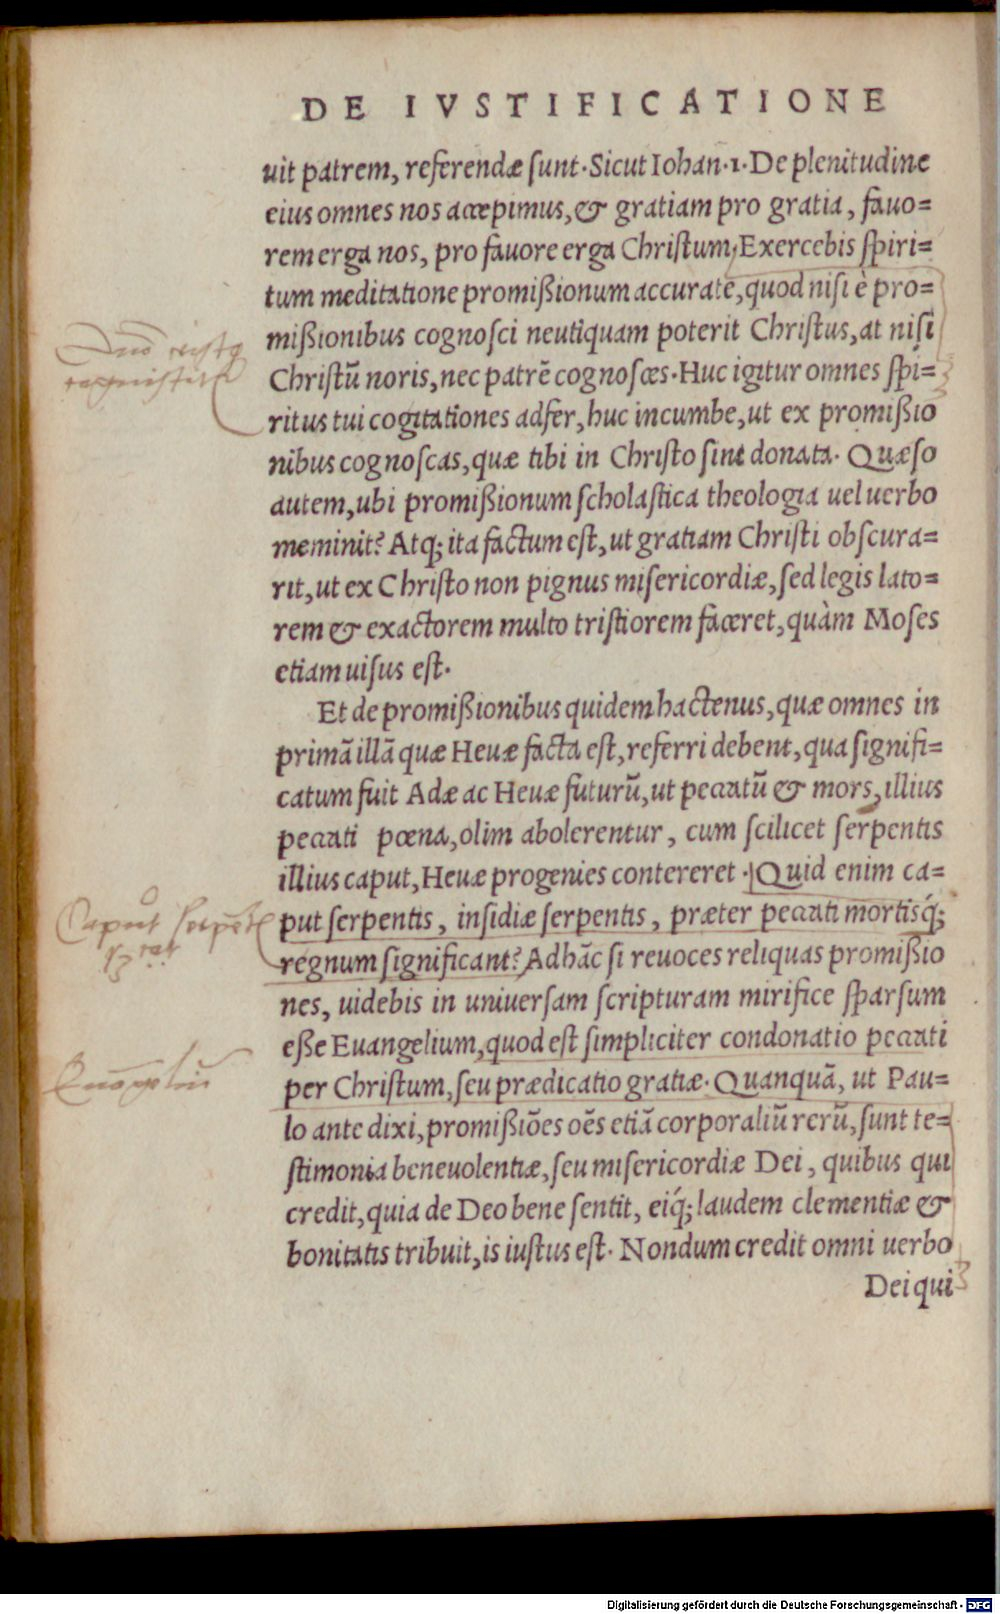 DE IVSTIFICATIONE
uit patrem, referendæ ſunt. Sicut Iohan. 1. De plenitudine
eius omnes nos accepimus, & gratiam pro gratia, fauo=
rem erga nos, pro fauore erga Chriſtum, Exercebis ſpiri=
tum meditatione promißionum accurate, quod niſi è pro=
mißionibus cognoſci neutiquam poterit Chriſtus, at niſi
Chriſtū noris, nec patrē cognoſces. Huc igitur omnes ſpi=
ritus tui cogitationes adfer, huc incumbe, ut ex promißio
nibus cognoſcas, quæ tibi in Chriſto ſint donata. Quæſo
autem, ubi promißionum ſcholaſtica theologia uel uerbo
meminit? Atq; ita factum eſt, ut gratiam Chriſti obſcura=
rit, ut ex Chriſto non pignus miſericordiæ, ſed legis lato=
rem & exactorem multo triſtiorem faceret, quàm Moſes
etiam uiſus eſt.
Et de promißionibus quidem hactenus, quæ omnes in
primā illā quæ Heuæ facta eſt, referri debent, qua ſignifi=
catum fuit Adæ ac Heuæ futurū, ut peccatū & mors, illius
peccati pœna, olim abolerentur, cum ſcilicet ſerpentis
illius caput, Heuæ progenies contereret. Quid enim ca=
put ſerpentis, inſidiæ ſerpentis, præter peccati mortisq́;
regnum ſignificant? Adhāc ſi reuoces reliquas promißio
nes, uidebis in uniuerſam ſcripturam mirifice ſparſum
eße Euangelium, quod eſt ſimpliciter condonatio peccati
per Chriſtum, ſeu prædicatio gratiæ. Quanquā, ut Pau=
lo ante dixi, promißiōes oēs etiā corporaliū rerū, ſunt te=
ſtimonia beneuolentiæ, ſeu miſericordiæ Dei, quibus qui
credit, quia de Deo bene ſentit, eiq́; laudem clementiæ &
bonitatis tribuit, is iuſtus eſt. Nondum credit omni uerbo
Dei qui
Caput
Digitalisierung gefördert durch die Deutsche Forschungsgemeinschaft - DFG